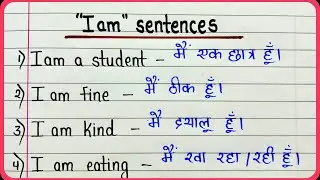 "I am" sentences
1) I am a student – मैं एक छात्र हूँ।
2) I am fine – मैं ठीक हूँ।
3) I am kind – मै दयालू हूँ।
4) I am eating – मैं खा रहा / रही हूँ।